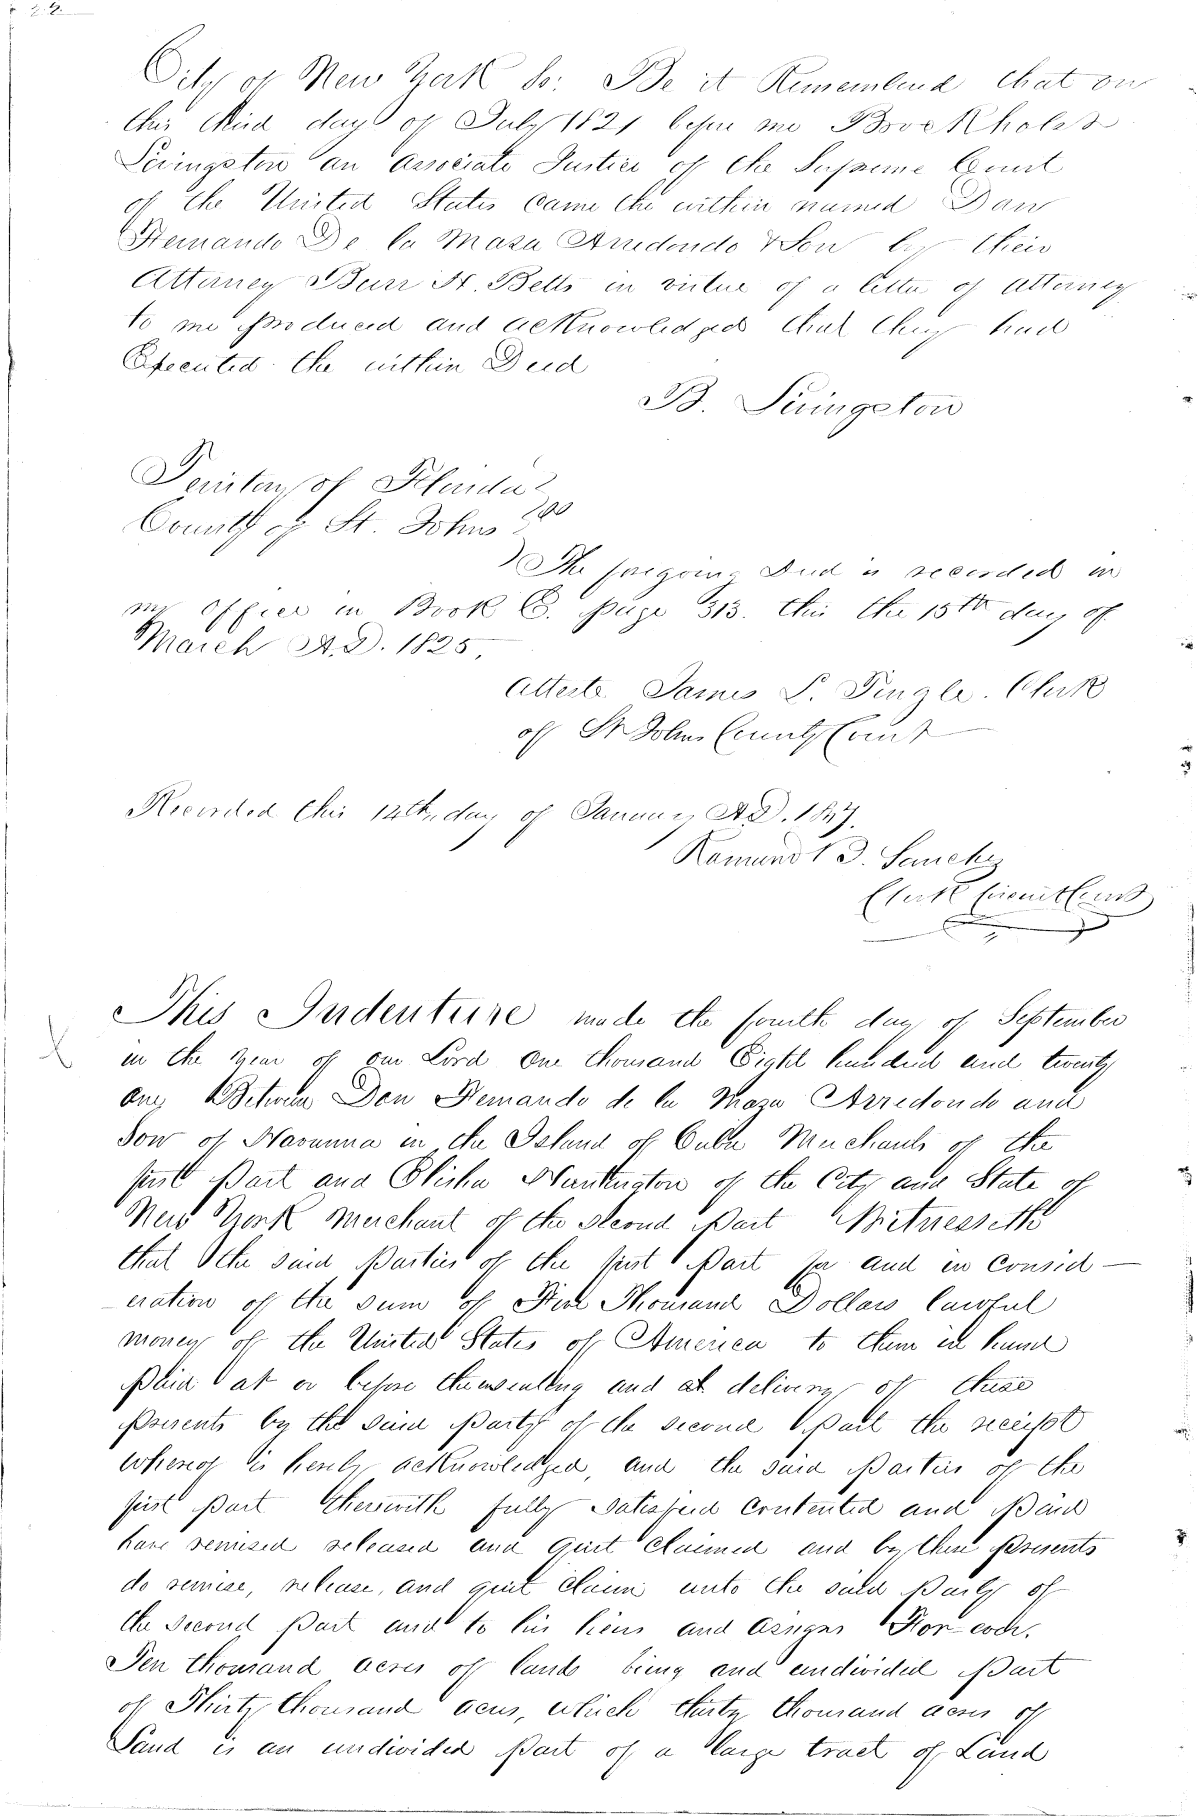 22
City of New York Ss: Be it Remembered that on
this third day of July 1821 before me Brockholst
Livingston an Associate Justice of the Supreme Court
of the United States came the within named Don
Fernando De la Maza Arredondo & Son by their
Attorney Burr H. Betts in virtue of a letter of attorney
to me produced and acknowledged that they had
Executed the within Deed
B. Livingston
Territory of Florida
County of St. Johns
The foregoing Deed is recorded in
my Office in Book C. page 313. this the 15th day of
March A.D. 1825.
Atteste James S. Tingle. Clerk
of St Johns County Court
Recorded this 14th day of January A.D.
Ramund B. Sanchez
Clerk Circuit Court
This Indenture made the fourth day of September
in the year of our Lord One thousand Eight hundred and twenty
one, Between Don Fernando de la Maza Arredondo and
Son of Havanna in the Island of Cuba Merchants of the
first Part and Elisha Huntington of the City and State of
New York Merchant of the second Part Witnesseth
that the said Parties of the first Part for and in consid-
eration of the sum of Five Thousand Dollars lawful
money of the United States of America to them in hand
Paid at or before the ensealing and at delivery of these
Presents by the said Party of the second Part the receipt
whereof is hereby acknowledged, and the said Parties of the
first Part therewith fully satisfied contented and Paid
have remised released and quit claimed and by these Presents
do remise, release, and quit claim unto the said Party of
the second Part and to his heirs and assigns
Ten thousand acres of lands being and undivided Part
of Thirty thousand acres, which thirty thousand acres of
Land is an undivided Part of a large tract of Land